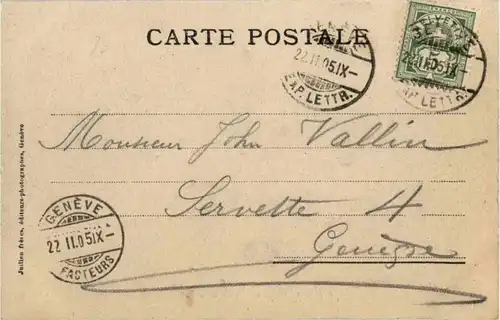 CARTE POSTALE
22.II.05.IX–
EXP. LETTR.
HELVETIA
22.II.05.IX–
EXP. LETTR.
Monsieur John Vallin
Servette 4
Genève
GENÈVE
22.II.05.IX–
FACTEURS
Jullien frères, éditeurs-photographes, Genève